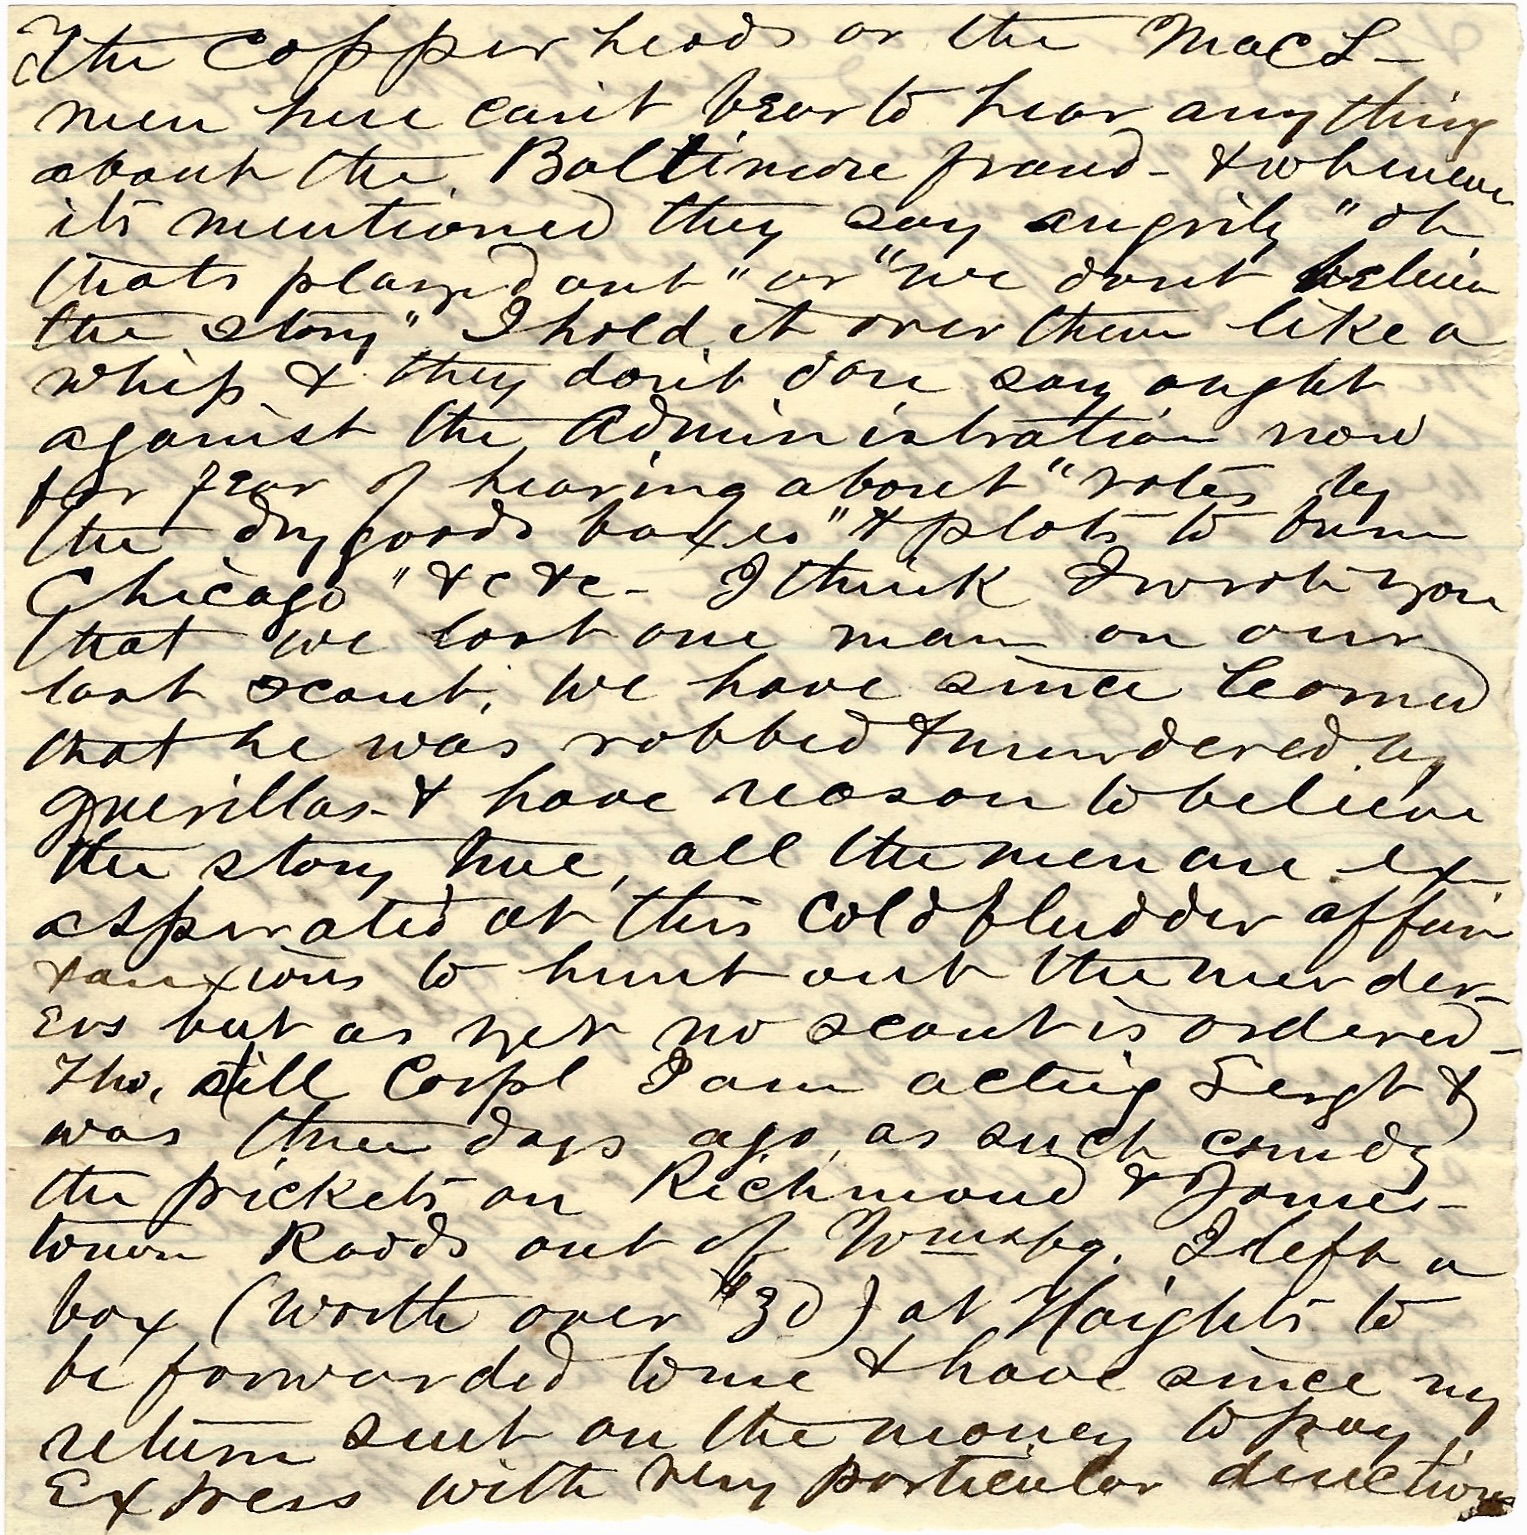 The Copperheads or the MacL-
men here can't bear to hear anything
about the Baltimore fraud - & whenever
its mentioned they say angrily "oh
thats played out" or "we dont believe
the story" I hold it over them like a
whip & they don't dare say aught
against the Administration now
for fear of hearing about "votes by
the dry goods boxes" & plots to burn
Chicago" &c &c - I think I wrote you
that we lost one man on our
last scout, we have since learned
that he was robbed & murdered by
guerillas - & have reason to believe
the story true, all the men are ex
asperated at this cold bludder affair
& anxious to hunt out the murder-
ers but as yet no scout is ordered -
Tho, still Corpl I am acting Sergt &
was three days ago, as such comdg
the pickets on Richmond & James-
town Roads out of Wmsbg. I left a
box (worth over $30) at Haights to
be forwarded to me & have since my
return sent on the money to pay
Express with very particular directions